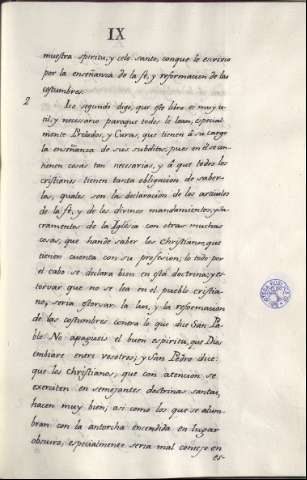 IX
muestra spiritu, y celo santo, con que lo escrivio
por la enseñanza de la fè, y reformacion de las
costumbres.
2 Lo segundo digo, que este libro es muy u-
til, y necesario para que todos le lean, especial
mente Prelados, y Curas, que tienen à su cargo
la enseñanza de sus subditos, pues en èl se con
tienen cosas tan necesarias, y à que todos los
cristianos tienen tanta obligacion de saber-
las, quales son la declaracion de los articulos
de la fè, y de los divinos mandamientos, y Sa-
cramentos de la Iglesia con otras muchas
cosas, que han de saber los Christianos, que
tienen cuenta con su profesion; lo todo por
el cabo se declara bien en esta doctrina; y es-
torvar que no se lea en el pueblo cristia-
no, seria estorvar la luz, y la reformacion
de las costumbres contra lo que dice San Pa-
blo No apagueis el buen espiritu, que Dios
embiare entre vosotros; y San Pedro dice:
que los Christianos, que con atencion se
exerciten en semejantes doctrinas santas,
hacen muy bien; asi como los que se alum-
bran con la antorcha encendida en lugar
obscuro, especialmente seria mal consejo en
es-